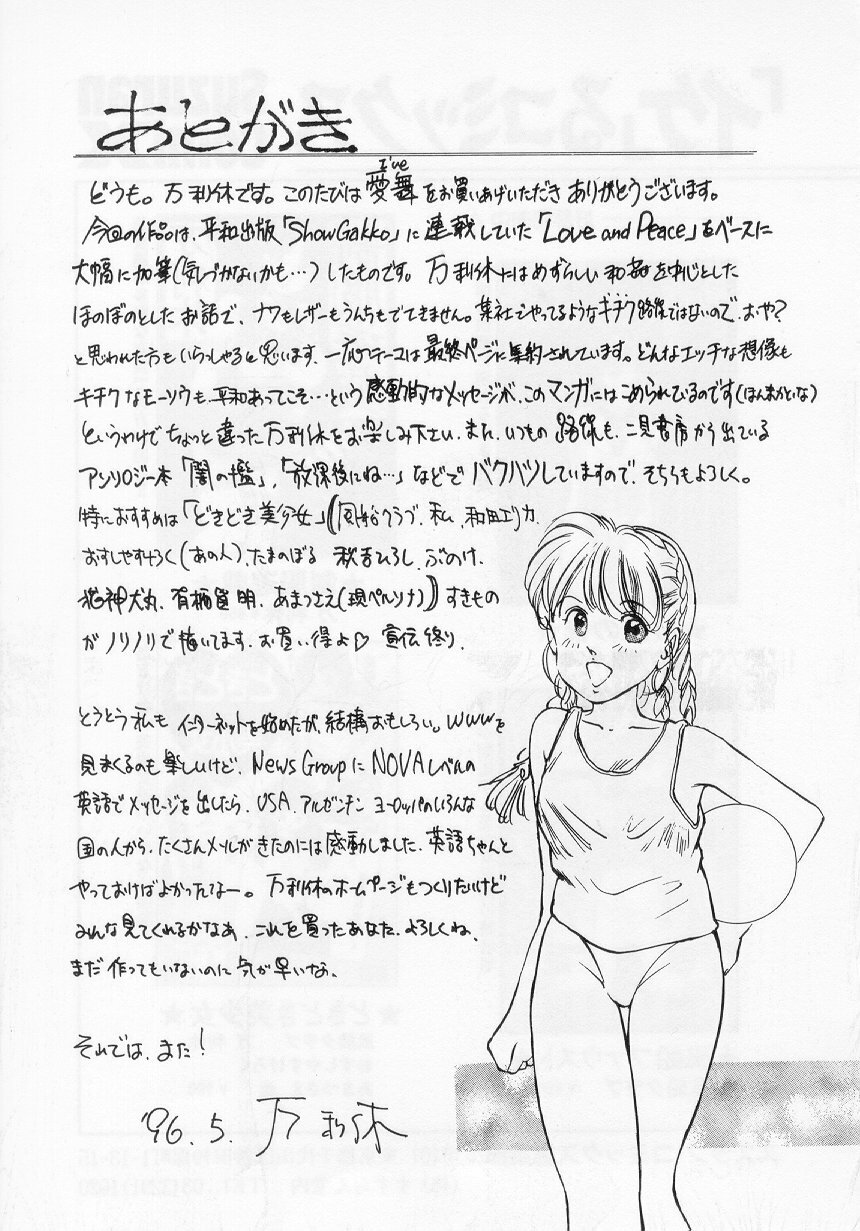 あとがき
どうも。万利休です。このたびは愛舞をお買いあげいただきありがとうございます。
I've
今回の作品は、平和出版「Show Gakko」に連載していた「Love and Peace」をベースに
大幅に加筆(気づかないかも…)したものです。万利休にはめずらしい和姦を中心とした
ほのぼのとしたお話で、ナワもレザーもうんちもでてきません。某社でやってるようなキチク路線ではないので、おや?
と思われた方もいらっしゃると思います、一応テーマは最終ページに集約されています。どんなエッチな想像も
キチクなモーソウも、平和あってこそ…という感動的なメッセージが、このマンガにはこめられているのです(ほんまかいな)
というわけでちょっと違った万利休をお楽しみ下さい、また、いつもの路線も、二見書房から出ている
アンソロジー本「闇の檻」,「放課後にね…」などでバクハツしていますので、そちらもよろしく。
特におすすめは「どきどき美少女」((風船クラブ、私、和田エリカ、
おすしやすろく(あの人)、たまのぼる 秋吉ひろし、ぶのけ、
猫神犬丸、有栖直明、あまつさえ(現ペルソナ)) すきもの
がノリノリで描いてます、お買い得よ♡ 宣伝終り、
とうとう私もインターネットを始めたが、結構おもしろい。WWWを
見まくるのも楽しいけど、News GroupにNOVAレベルの
英語でメッセージを出したら、USA、アルゼンチン ヨーロッパのいろんな
国の人から、たくさんメールがきたのには感動しました、英語ちゃんと
やっておけばよかったなー。万利休のホームページもつくりたいけど
みんな見てくれるかなあ、これを買ったあなた、よろしくね、
まだ作ってもいないのに気が早いなあ、
それでは、また!
'96. 5. 万利休